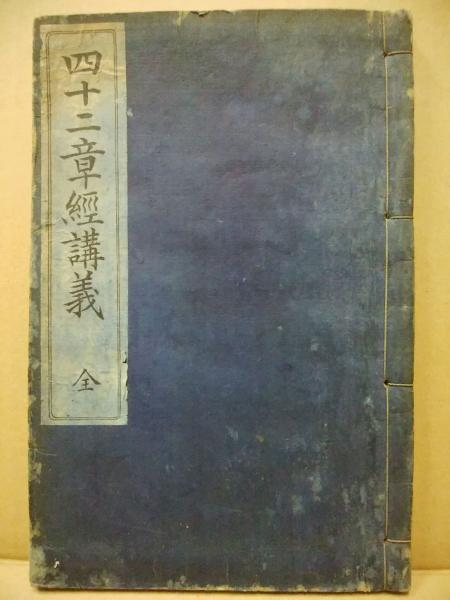 四十二章經講義 全